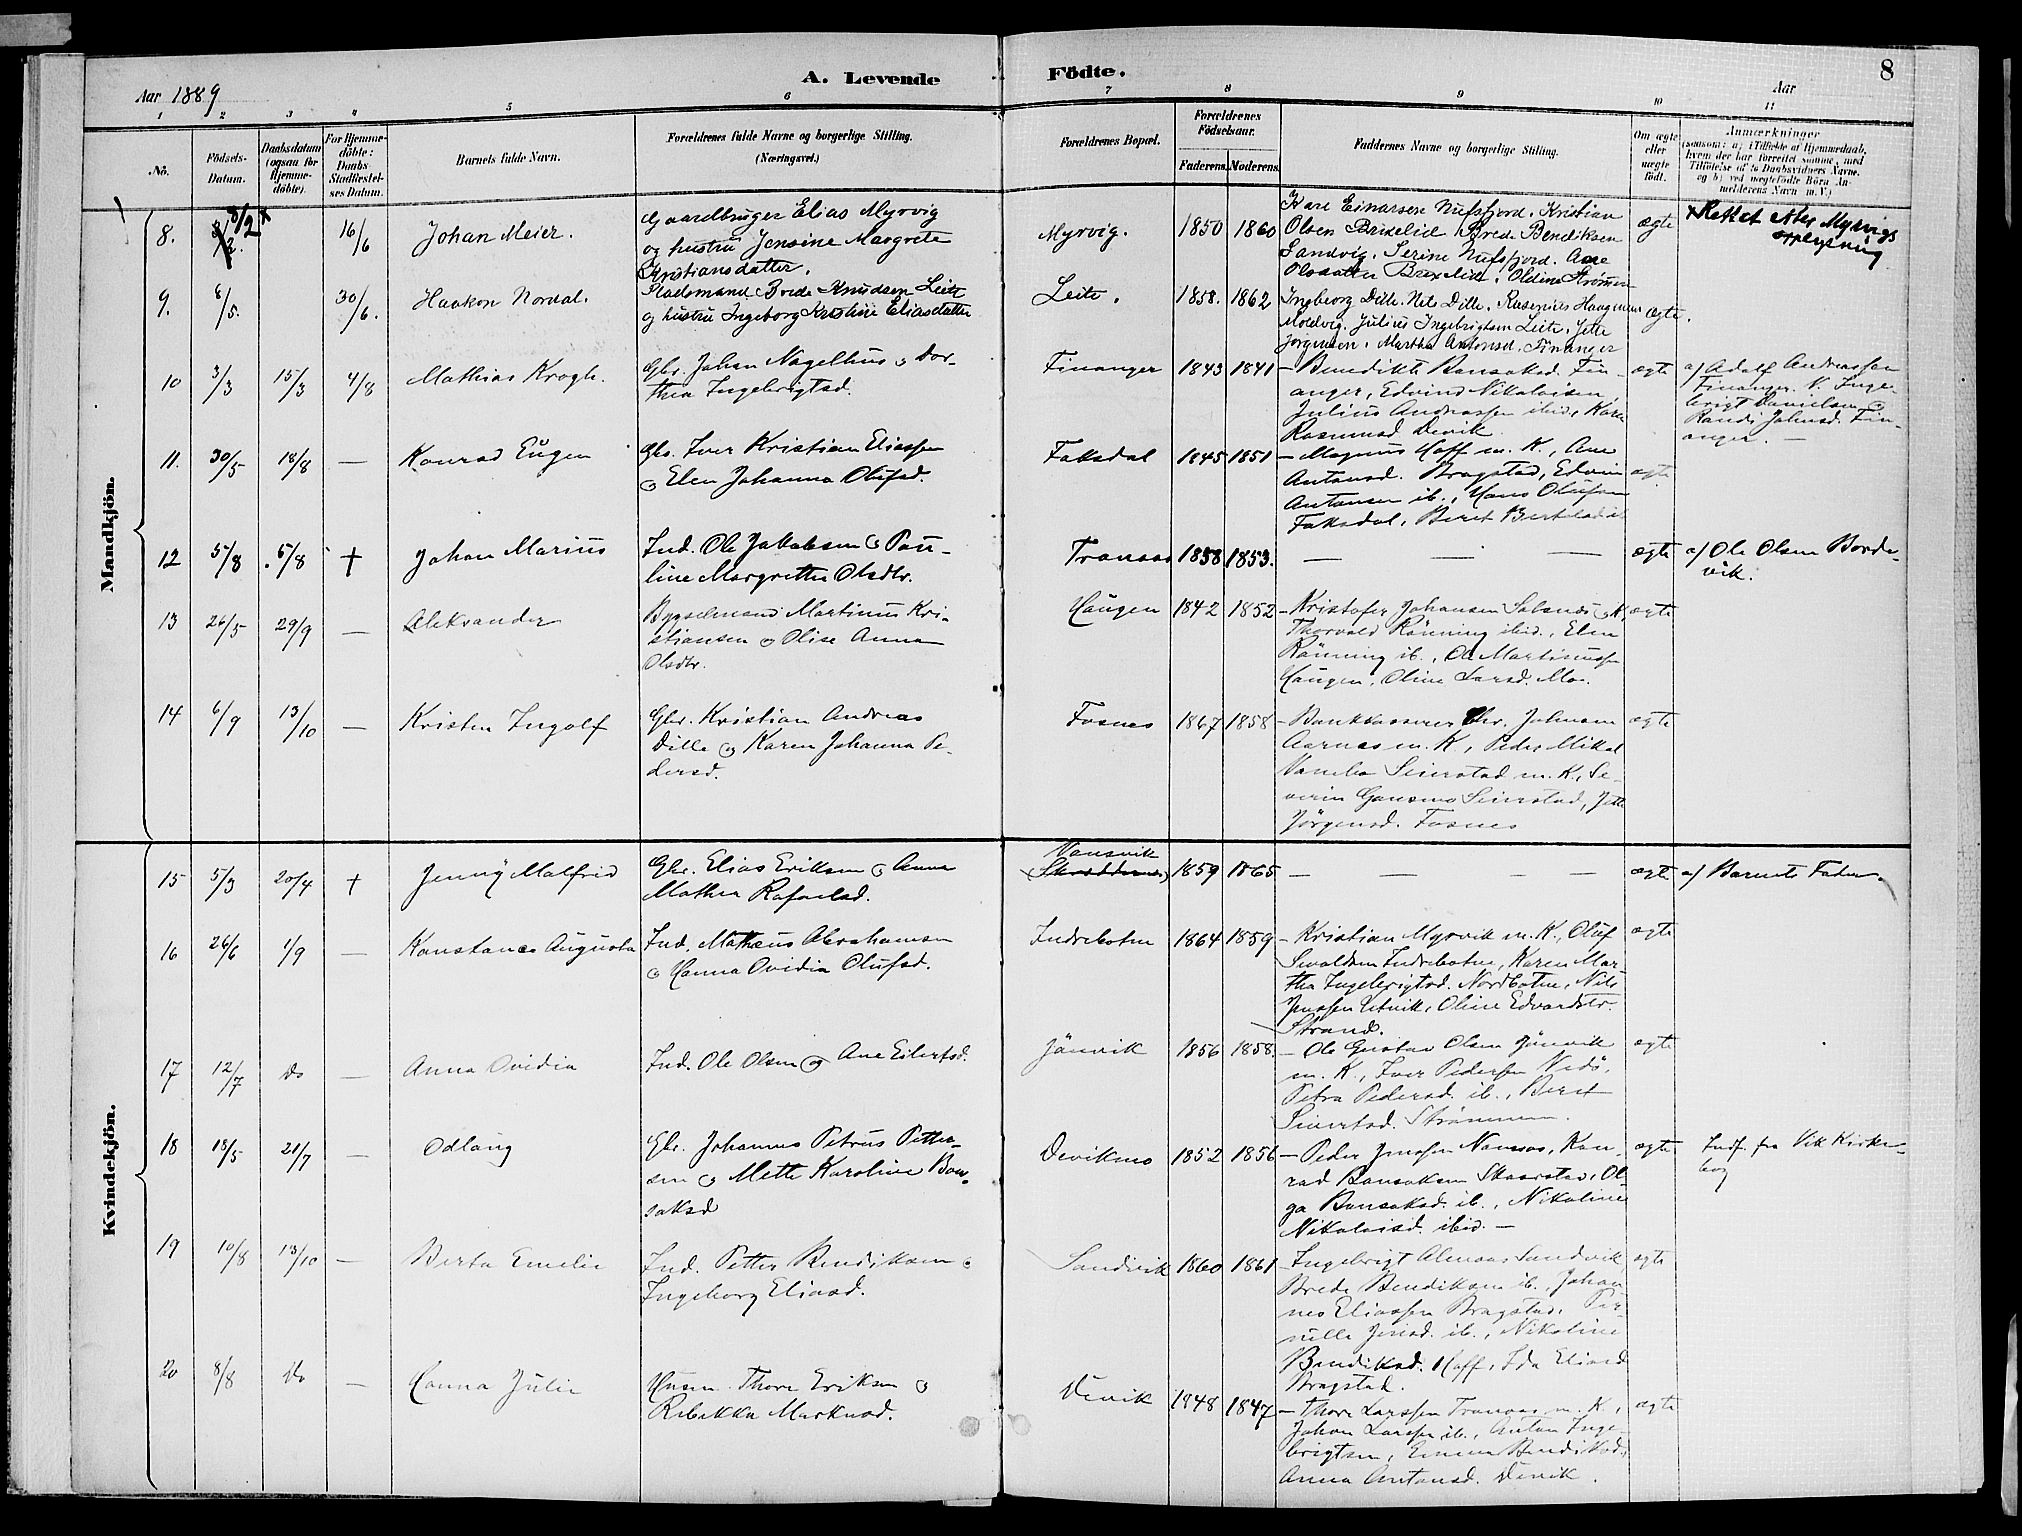 A. Levende Födte. 8
Aar 1889 Aar
1 2 3 4 5 6 7 8 9 10 11
No.
Födsels-
Datum.
Daabsdatum
(ogsaa for
Hjemme-
döbte).
For Hjemme-
döbte:
Daabs-
Stadfæstel-
ses Datum.
Barnets fulde Navn.
Forældrenes fulde Navne og borgerlige Stilling.
(Næringsvei.)
Forældrenes Bopæl.
Forældrenes
Födselsaar.
Faderens. Moderens.
Faddernes Navne og borgerlige Stilling.
Om ægte
eller
uægte
födt.
Anmærkninger
(saasom: a) i Tilfælde af Hjemmedaab,
hvem der har forrettet samme, med
Tilföielse af to Daabsvidners Navne.
og b) ved uægtefödte Börn An-
melderens Navn m. V.)
Mandkjön.
8. 8/2 x 16/6 Johan Meier.
Gaardbruger Elias Myrvig
og hustru Jensine Margrete
Kristiansdatter.
Myrvig. 1850 1860
Kare Einarsen Nufsfjord. Kristian
Olsen Brixelid Brede Bendiksen
Sandvig. Serine Nufsfjord. Ane
Olsdatter Brixelid. Oldine Strømen
ægte
x Rettet etter Myrvigs
opplysning
9. 8/5. 30/6. Haakon Nordal.
Pladsmand Brede Knudsen Leite
og hustru Ingeborg Kristine Eliasdatter
Leite. 1858. 1862
Ingeborg Dille. Nils Dille. Rasenius Haagensen
Moldvig. Julius Ingebrigtsen Leite. Jette
Jörgensen. Martha Antonsd. Finanger
ægte.
10 3/3 15/3 4/8 Mathias Krogh.
Gbr. Johan Nagelhus o Dor-
thea Ingebrigtsd.
Finanger 1843 1841
– Benedikte Bansaksd. Fin-
anger, Edvind Nikolaisen
Julius Andreassen ibid, Kare
Rasmusd Devik.
ægte
a/ Adolf Andreassen
Finanger. V. Inge-
brigt Danielsen o
Randi Johnsd. Fin-
anger. –
11. 30/5 18/8 – Konrad Eugen
Gbr. Iver Kristian Eliassen
o Elen Johanna Olufsd.
Faksdal 1845 1851
– Magnus Hoff m. K., Ane
Antonsd. Bragstad, Edvin
Antonsen ib., Hans Olufsen
Faksdal, Beret Bertelsd ib
ægte
12 5/8 5/8 † Johan Marius
Ind. Ole Jakobsen o Pau-
line Margrethe Olsdtr.
Tranaas 1858 1853.
– – –
ægte
a/ Ole Olsen Borde-
vik.
13 26/5 29/9 – Aleksander
Bygselmand Martinus Kri-
stiansen o Olise Anna
Olsdtr.
Haugen 1842 1852
– Kristofer Johansen Salsnes o K.
Thorvald Rönning ibid., Elen
Rönning ib., Ole Martinussen
Haugen, Oline Larsd. Mo.
ægte
14 6/9 13/10 – Kristen Ingolf
Gbr. Kristian Andreas
Dille o Karen Johanna Pe-
dersd.
Fosnes 1867 1858
– Bankkasserer Chr. Johnsen
Aarnes m. K, Peder Mikal
Vanebo Seierstad m. K., Se-
verin Gansmo Seierstad, Jette
Jörgensd. Fosnes
ægte
Kvindekjön.
15 5/3 20/4 † Jenny Malfrid
Gbr. Elias Eriksen o Anna
Mathea Rafaelsd.
Vansvik
1859 1865
– – – –
ægte
a/ Barnets Fader.
16 26/6 1/9 – Konstance Augusta
Ind. Matheus Abrahamsen
o Hanna Ovidia Olufsd.
Indrebotne 1864 1859
– Kristian Myrvik m. K., Oluf
Sivaldsen Indrebotne, Karen Mar-
tha Ingebrigtsd. Nordbotne, Nils
Jenssen Utvik, Oline Edvardsdtr.
Strand.
ægte
17 12/7 Do – Anna Ovidia
Ind. Ole Olsen o Ane Eilertsd.
Jönvik 1856 1858.
– Ole Gustav Olsen Jönvik
m. K., Iver Pedersen Nedö,
Petra Pedersd. ib., Beret
Sivertsd. Strömmen.
ægte
18 18/5 21/7 – Odlaug
Gbr. Johannes Petrus Petter-
sen o Mette Karoline Ban-
saksd
Devikmo 1852 1856
– Peder Jenssen Namsos, Kon-
rad Bansaksen Skaarstad, Ol-
ga Bansaksd. ib., Nikoline
Nikolaisd. ibid. –
ægte
Indf. fra Vik Kirke-
bog
19 10/8 13/10 – Berta Emelie
Ind. Petter Bendiksen o
Ingeborg Eliasd.
Sandvik 1860 1861
– Ingebrigt Almaas Sandvik,
Brede Bendiksen ib., Johan-
nes Eliassen Bragstad, Per-
nille Jensd. ib., Nikoline
Bendiksd. Hoff, Ida Eliasd
Bragstad.
ægte
20 8/8 Do – Hanna Julie
Husm. Thore Eriksen o
Rebekka Markusd.
Devik 1848 1847
– Thore Larssen Tranaas m. K,
Johan Larssen ib., Anton Inge-
brigtsen, Emma Bendiksd.
Anna Antonsd. Devik.
ægte